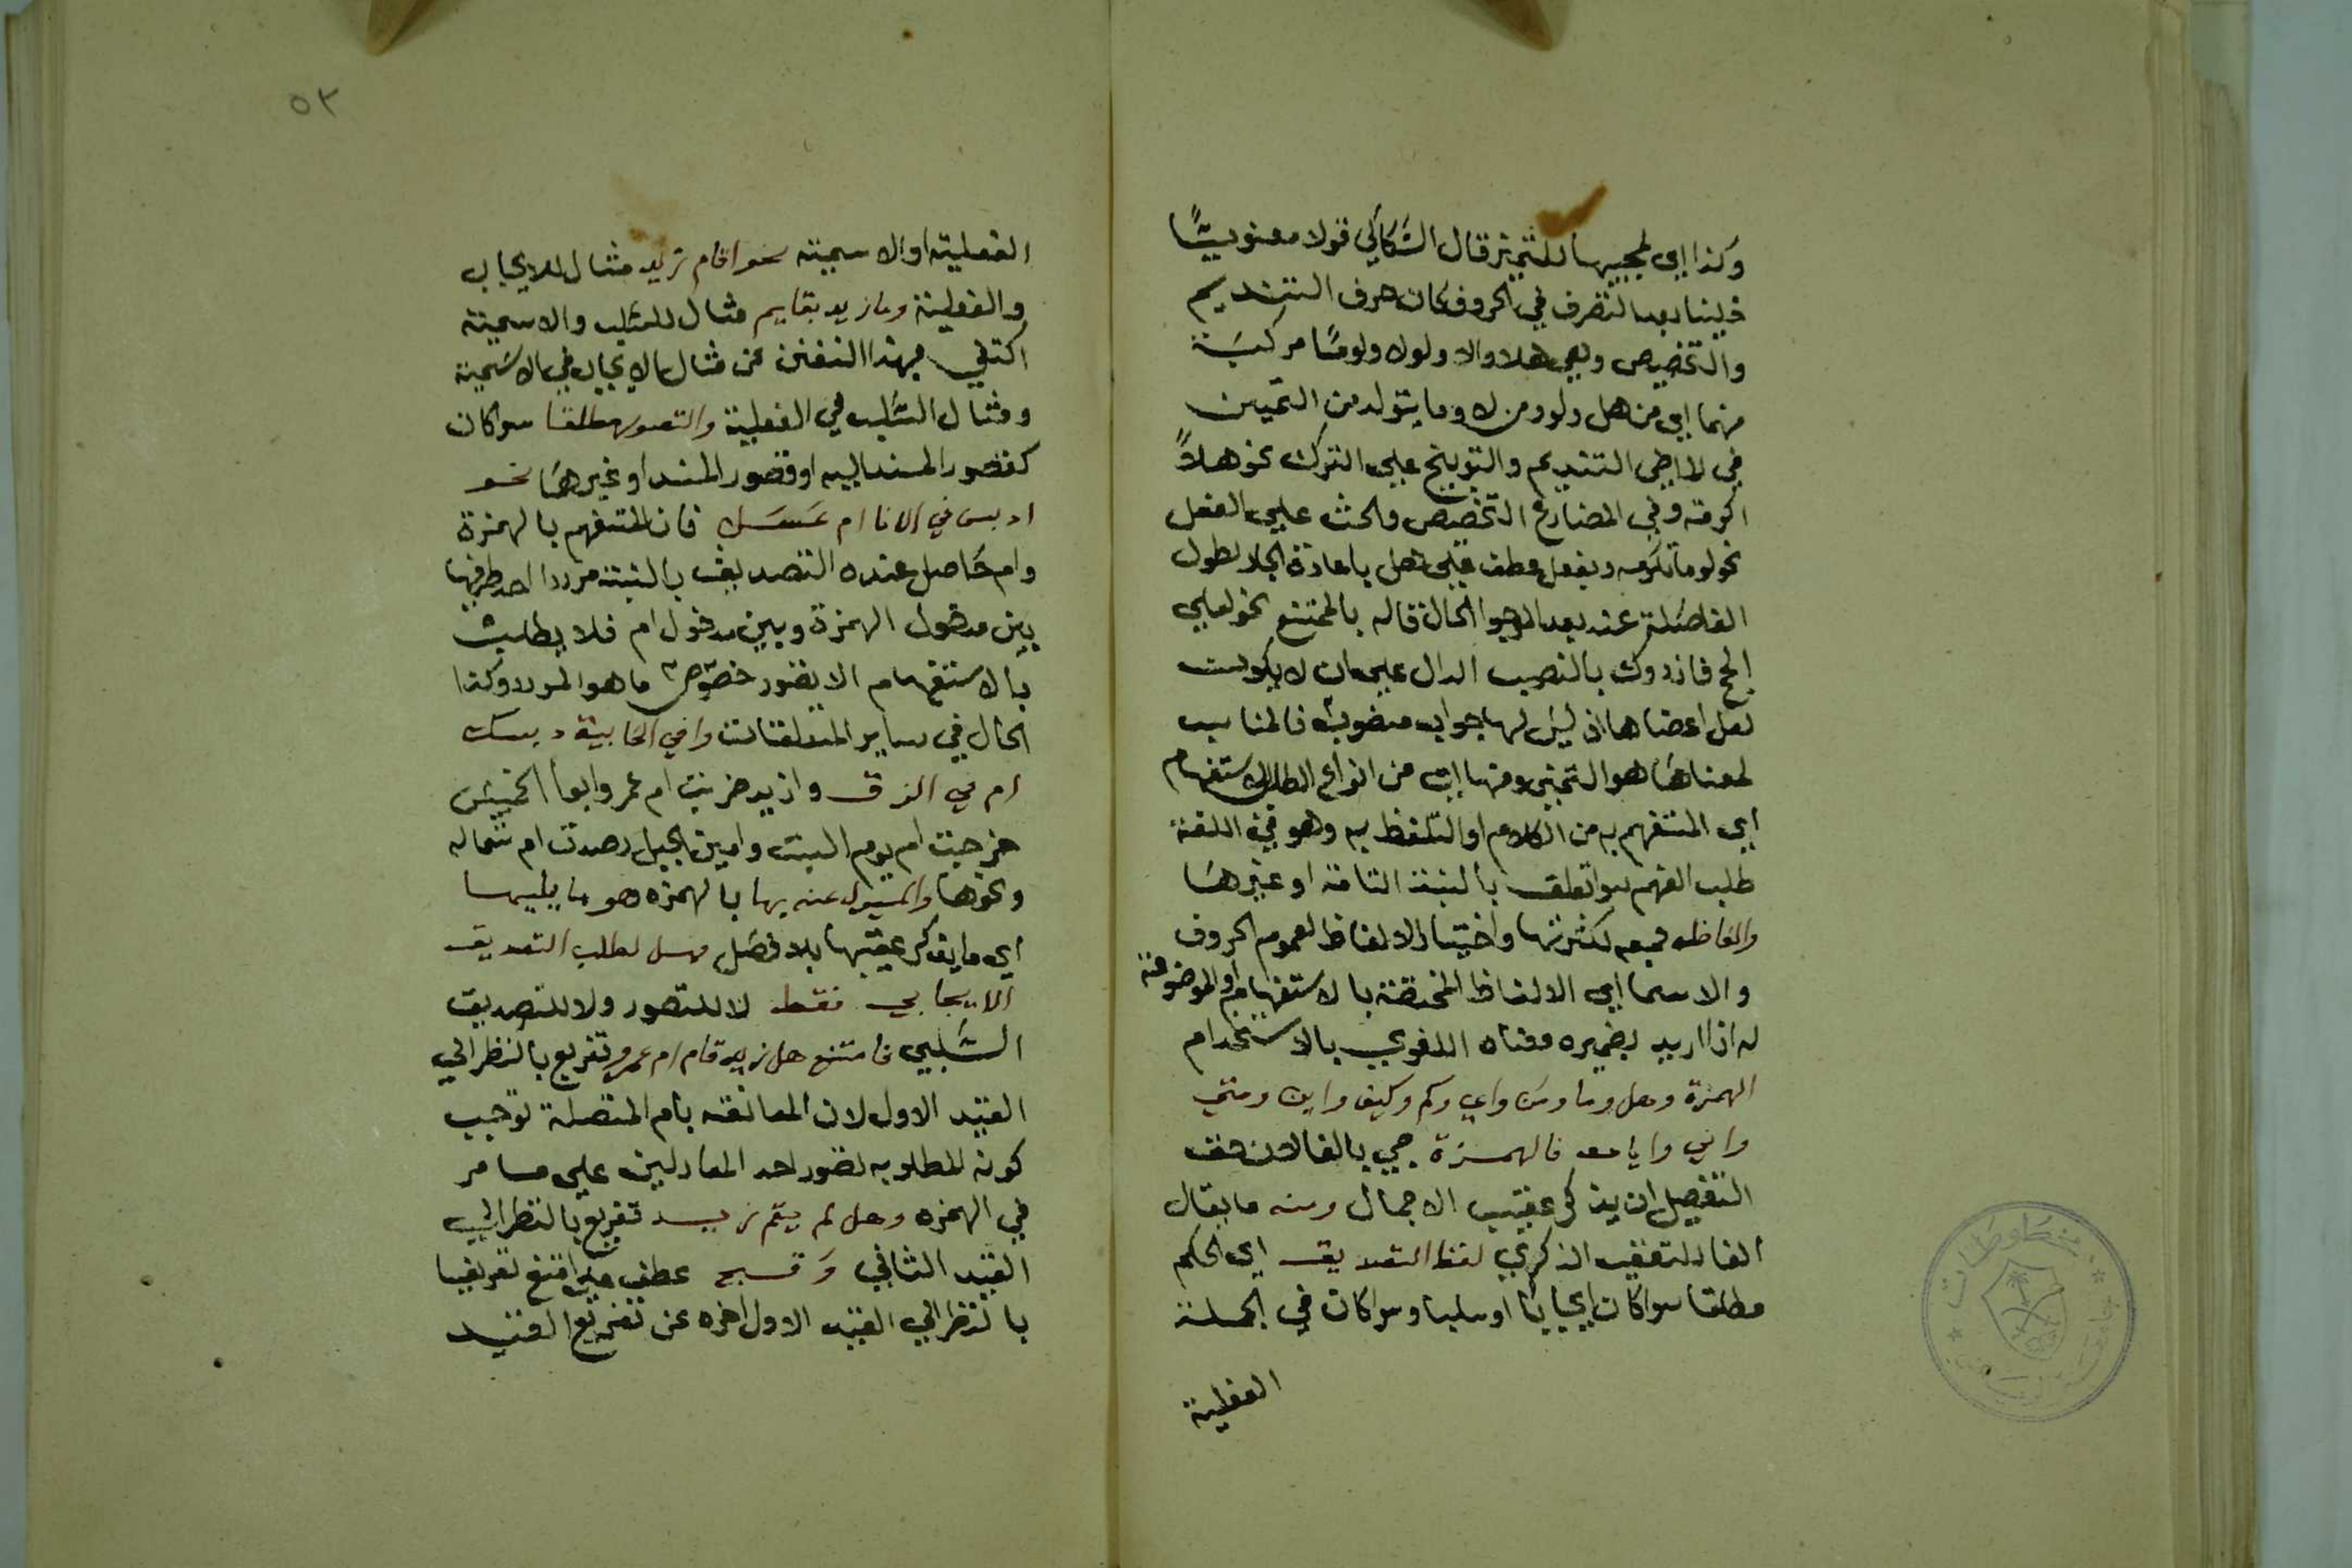 وكذا اي لمجيبها للتمني قال السكاكي قولا معنويا
خلينا بعد التصرف في الحروف كان حرف التنديم
والتخصيص وهي هلا والا ولولا ولوما مركبة
منهما اي من هل ولو ومن لا وما يتولد من التمني
في الماضي التنديم والتوبيخ علي الترك نحو هلا
اكرمته وفي المضارع التخصيص والحث علي الفعل
نحو لو ما تكرمه وبفعل عطف علي بهل باعادة الجار لطول
الفاصلة عند بعد المرجو الحال قاله بالممتنع نحو لعلي
احج فازورك بالنصب الدال علي ان لا يكون
لعل اعضاها اذ ليس لها جواب منصوب فالمناسب
لمعناها هو التمني ومنها اي من انواع الطلب الاستفهام
اي المستفهم به من الكلام او التلفظ به وهو في اللغة
طلب الفهم سوا تعلق بالنسبة التامة او غيرها
والفاظه جمعه لكثرتها واختيار الالفاظ لعموم الحروف
والاسما اي الالفاظ المختصة بالاستفهام او الموضوعة
له اذا اريد بضميره معناه اللغوي بالاستخدام
الهمزة وهل وما ومن واي وكم وكيف واين ومتي
واني وايان فالهمزة جي بالفا لان حق
التفصيل ان يذكر عقيب الاجمال ومنه ما يقال
الفا للتعقيب الذكري لفظ التصديق اي الحكم
مطلقا سوا كان ايجابيا او سلبا وسوا كان في الجملة
الفعلية
٥٢
الفعلية او الاسمية نحو اقام زيد مثال للايجاب
والفعلية وما زيد بقايم مثال للسلب والاسمية
اكتفي بهذا التفنن عن مثال الايجاب في الاسمية
ومثال السلب في الفعلية والتصور مطلقا سوا كان
كتصور المسند اليه او تصور المسند او غيرهما نحو
ادبس في الانا ام عسل فان المستفهم بالهمزة
وام حاصل عنده التصديق بالنسبة مرددا احد طرفيها
بين مدخول الهمزة وبين مدخول ام فلا يطلب
بالاستفهام الا تصور خصوص ما هو المردد وكذا
الحال في ساير المتعلقات وافي الخابية دبسك
ام في الزق وازيد ضربت ام عمرو وايوم الخميس
خرجت ام يوم السبت وايمين الجبل رصدت ام شماله
ونحوها والمسيول عنه بها بالهمزه هو ما يليها
اي ما يذكر عقيبها بلا فصل وهل لطلب التصديق
الايجابي فقط لا للتصور ولا للتصديق
السلبي فامتنع هل زيد قام ام عمرو تفريع بالنظر الي
القيد الاول لان المعانقه بام المتصلة توجب
كونه المطلوبه تصور احد المعادلين علي ما مر
في الهمزه وهل لم يقم زيد تفريع بالنظر الي
القيد الثاني وقبح عطف علي امتنع تفريعا
بالنظر الي القيد الاول اخره عن تفريع القيد